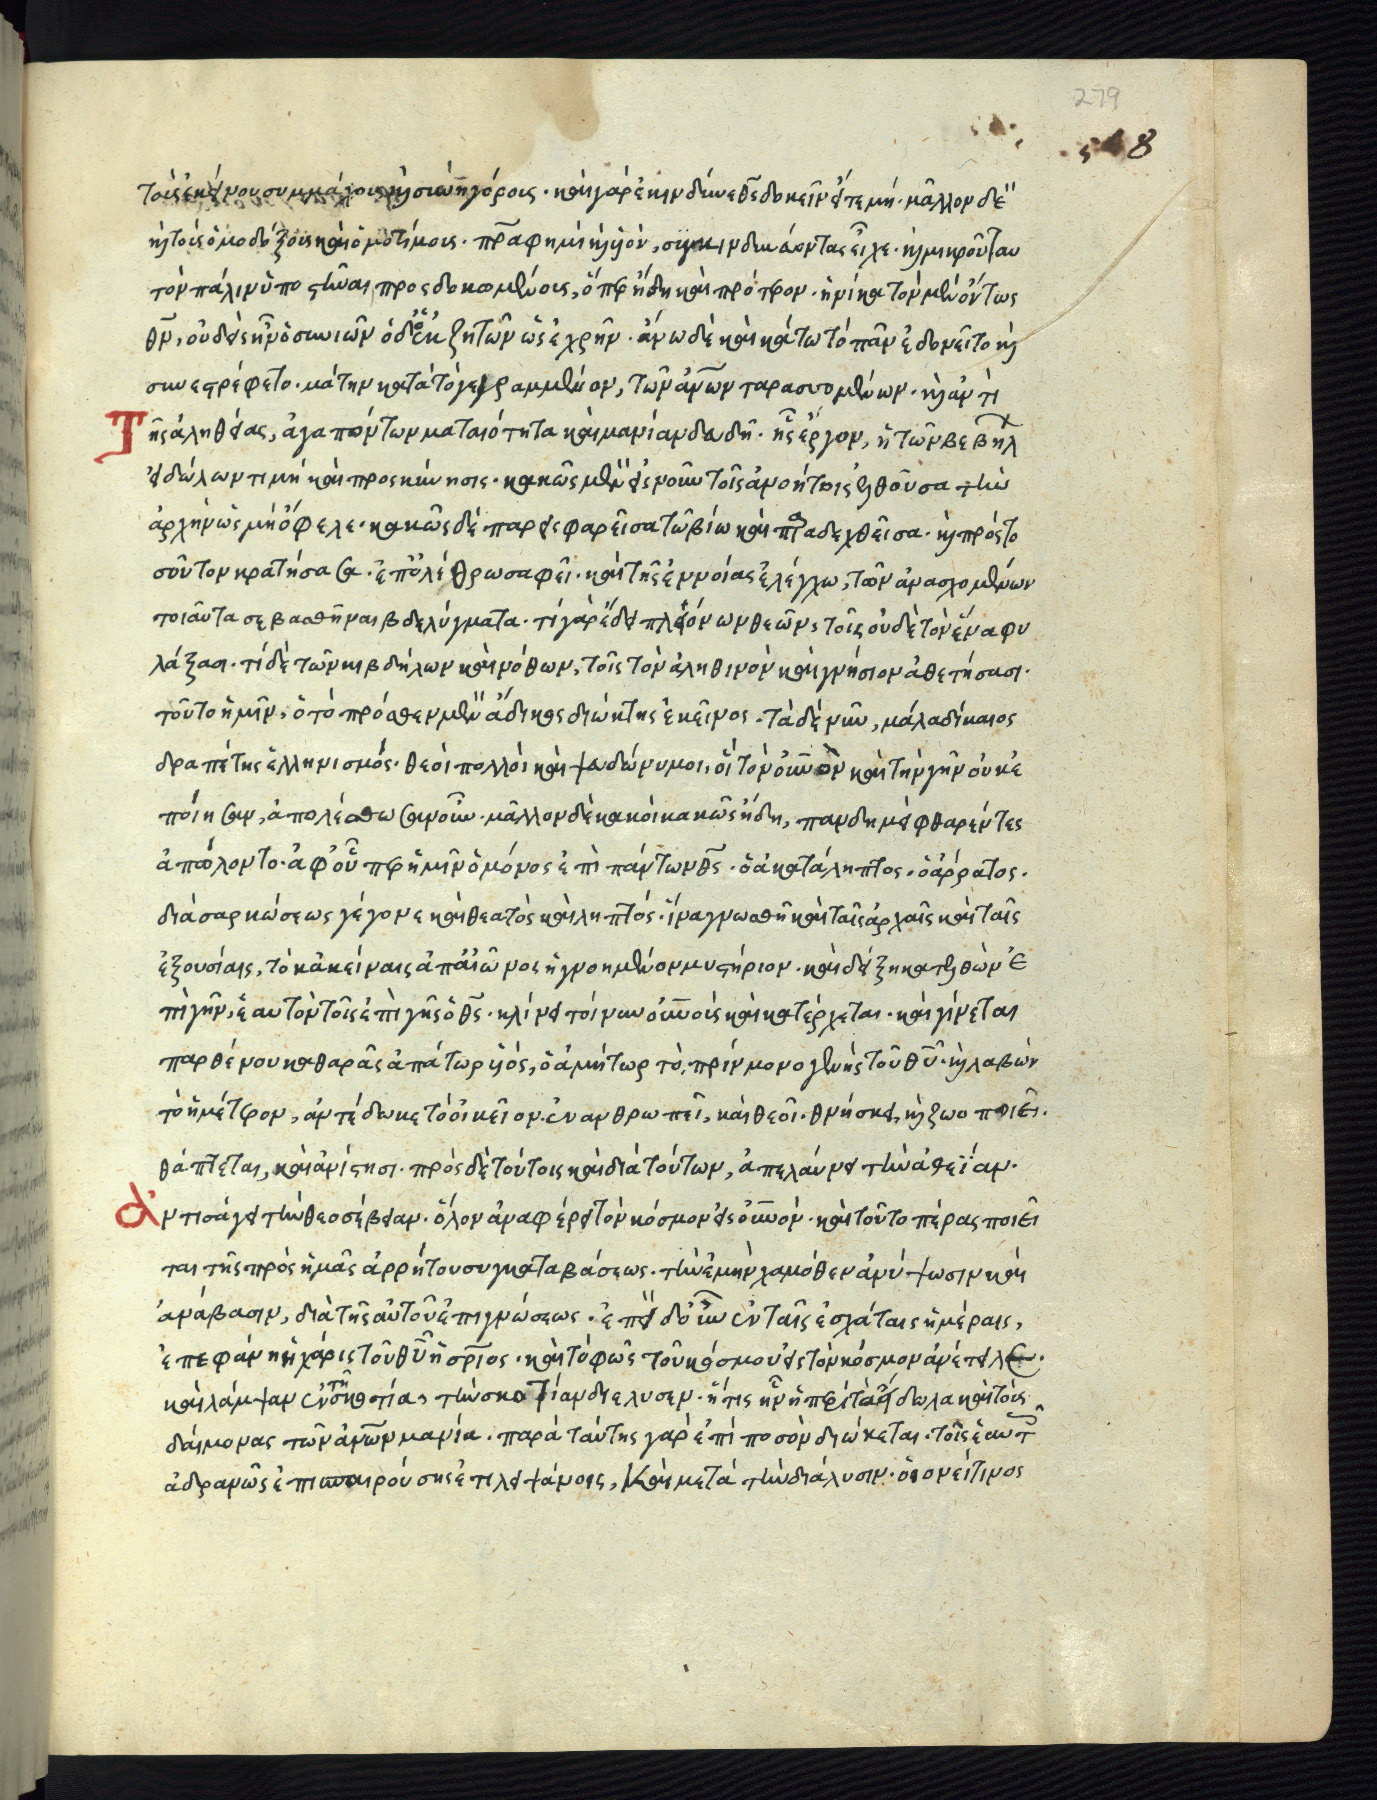 279
τοῖς ἐκείνου συμμάχοις καὶ συνηγόροις· καὶ γὰρ ἐκινδύνευε θ̅ς̅ δοκεῖν εἴτε μή· μᾶλλον δὲ
καὶ τοῖς ὁμοδόξοις καὶ ὁμοτίμοις· π̅ρ̅α φημὶ καὶ υἱὸν, συγκινδυνεύοντας εἶχε· καὶ μικροῦ ταυ
τὸν πάλιν ὑποστῆναι προσδοκωμένοις, ὅπερ ἤδη καὶ πρότερον· ἡνίκα τὸν μὲν ὄντως
θ̅ν̅, οὐδεὶς ἦν ὁ συνιῶν οὐδὲ ἐκζητῶν ὡς ἐχρῆν· ἄνω δὲ καὶ κάτω τὸ πᾶν ἐδονεῖτο καὶ
συνεστρέφετο· μάτην κατὰ τὸ γεγραμμένον, τῶν ἀν̅ω̅ν ταρασσομένων· καὶ ἀντὶ
τῆς ἀληθείας, ἀγαπώντων ματαιότητα καὶ μανίαν ψευδῆ· ἧς ἔργον, ἡ τῶν βεβήλ
εἰδώλων τιμὴ καὶ προσκύνησις· κακῶς μὲν εἰς νοῦν τοῖς ἀνοήτοις ἐλθοῦσα τὴν
ἀρχὴν ὡς μὴ ὄφελε· κακῶς δὲ παρεισφαρεῖσα τῶ βίω καὶ παραδεχθεῖσα· καὶ πρὸς το
σοῦτον κρατήσασα· ἐπ' ὀλέθρω σαφεῖ· καὶ τῆς ἐννοίας ἐλέγχω, τῶν ἀνασχομένων
τοιαῦτα σεβασθῆναι βδελύγματα· τί γὰρ ἔδει πλειόνων θεῶν, τοῖς οὐδὲ τὸν ἕνα φυ
λάξασι· τί δὲ τῶν κιβδήλων καὶ νόθων, τοῖς τὸν ἀληθινὸν καὶ γνήσιον ἀθετήσασι·
τοῦτο ἡμῖν, ὁ τὸ πρόσθεν μὲν ἄδικος διώκτης ἐκεῖνος· τὰ δὲ νῦν, μάλα δίκαιος
δραπέτης ἑλληνισμός· θεοὶ πολλοὶ καὶ ψευδώνυμοι, οἳ τὸν οὐ̅νὸν καὶ τὴν γῆν οὐκ ἐ
ποίησαν, ἀπολέσθωσαν οὖν· μᾶλλον δὲ κακοὶ κακῶς ἤδη, πανδημεὶ φθαρέντες
ἀπώλοντο· ἀφ' οὗπερ ἡμῖν ὁ μόνος ἐπὶ πάντων θ̅ς̅· ὁ ἀκατάληπτος· ὁ ἀόρατος·
διὰ σαρκώσεως γέγονε καὶ θεατὸς καὶ ληπτός· ἵνα γνωσθῆ καὶ ταῖς ἀρχαῖς καὶ ταῖς
ἐξουσίαις, τὸ κἀκείναις ἀπ' αἰῶνος ἠγνοημένον μυστήριον· καὶ δείξη κατελθὼν ἐ
πὶ γῆν, ἑαυτὸν τοῖς ἐπὶ γῆς ὁ θ̅ς̅· κλίνει τοίνυν οὐ̅νοὺς καὶ κατέρχεται· καὶ γίνεται
παρθένου καθαρᾶς ἀπάτωρ υἱὸς, ὁ ἀμήτωρ τὸ πρὶν μονογενὴς τοῦ θ̅υ̅· καὶ λαβὼν
τὸ ἡμέτερον, ἀντέδωκε τὸ οἰκεῖον· ἐνανθρωπεῖ, καὶ θεοῖ· θνήσκει, καὶ ζωοποιεῖ·
θάπτεται, καὶ ἀνίστησι· πρὸς δὲ τούτοις καὶ διὰ τούτων, ἀπελαύνει τὴν ἀθεΐαν·
ἀντισάγει τὴν θεοσέβειαν· ὅλον ἀναφέρει τὸν κόσμον εἰς οὐ̅νόν· καὶ τοῦτο πέρας ποιεῖ
ται τῆς πρὸς ἡμᾶς ἀρρήτου συγκαταβάσεως· τὴν ἐμὴν χαμόθεν ἀνύψωσιν καὶ
ἀνάβασιν, διὰ τῆς αὐτοῦ ἐπιγνώσεως· ἐπεὶ δ' οὖν ἐν ταῖς ἐσχάταις ἡμέραις,
ἐπεφάνη ἡ χάρις τοῦ θ̅υ̅ ἡ σ̅ρ̅ιος· καὶ τὸ φῶς τοῦ κόσμου εἰς τὸν κόσμον ἀνέτειλε·
καὶ λάμψαν ἐν τῆ σκοτία, τὴν σκοτίαν διέλυσεν· ἥτις ἦν ἡ περὶ τὰ εἴδωλα καὶ τοὺς
δαίμονας τῶν ἀν̅ω̅ν μανία· παρὰ ταύτης γὰρ ἐπὶ ποσὸν διώκεται· τοῖς ἑαυτ
ἀδρανῶς ἐπικαιρούσης ἔτι λειψάνοις, καὶ μετὰ τὴν διάλυσιν· οἱονεί τινος